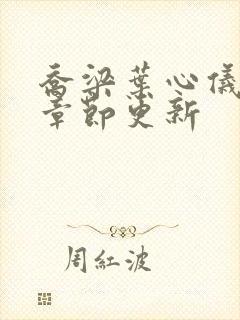 喬梁葉心儀
章節更新
周紅波